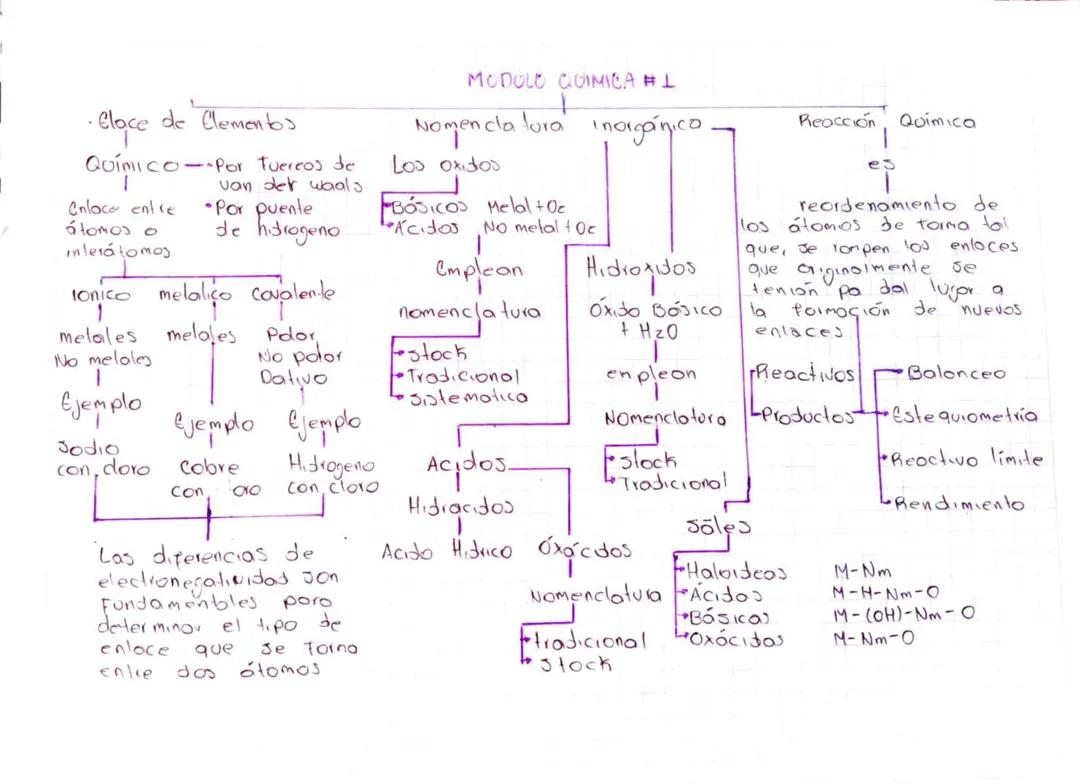 MODULO QUIMICA #1
· Elace de Elementos
Químico
• Por fuerzas de
van der waals
• Por puente
de hidrogeno
Enlace entre
átomos o
interátomos
Ionico
metales
No metales
Ejemplo
Sodio
con cloro
metalico
metales
Ejemplo
Cobre
con oro
Covalente
Polar
No polar
Dativo
Ejemplo
Hidrogeno
con cloro
Las diferencias de
electronegatividad son
Fundamentales para
determinar el tipo de
enlace que se forma
entre dos átomos
Nomenclatura inorgánica
Los oxidos
Básicos Metal + O2
Ácidos No metal + O2
Emplean
nomenclatura
stock
Tradicional
sistematica
Hidroxidos
Óxido Básico
+ H2O
enplean
Nomenclatura
stock
Tradicional
Acidos
Hidracidos
Acido Hidrico
Óxácidos
Nomenclatura
tradicional
stock
Sáles
Haloideos M-Nm
Ácidas M-H-Nm-O
Básicas M-(OH)-Nm-O
Oxácidas M-Nm-O
Reacción Química
es
reordenamiento de
los átomos de forma tal
que, se rompen los enlaces
que originalmente se
tenían pa dal lugar a
la formación de nuevos
enlaces
Reactivos
Productos
Balanceo
Estequiometría
Reactivo límite
Rendimiento